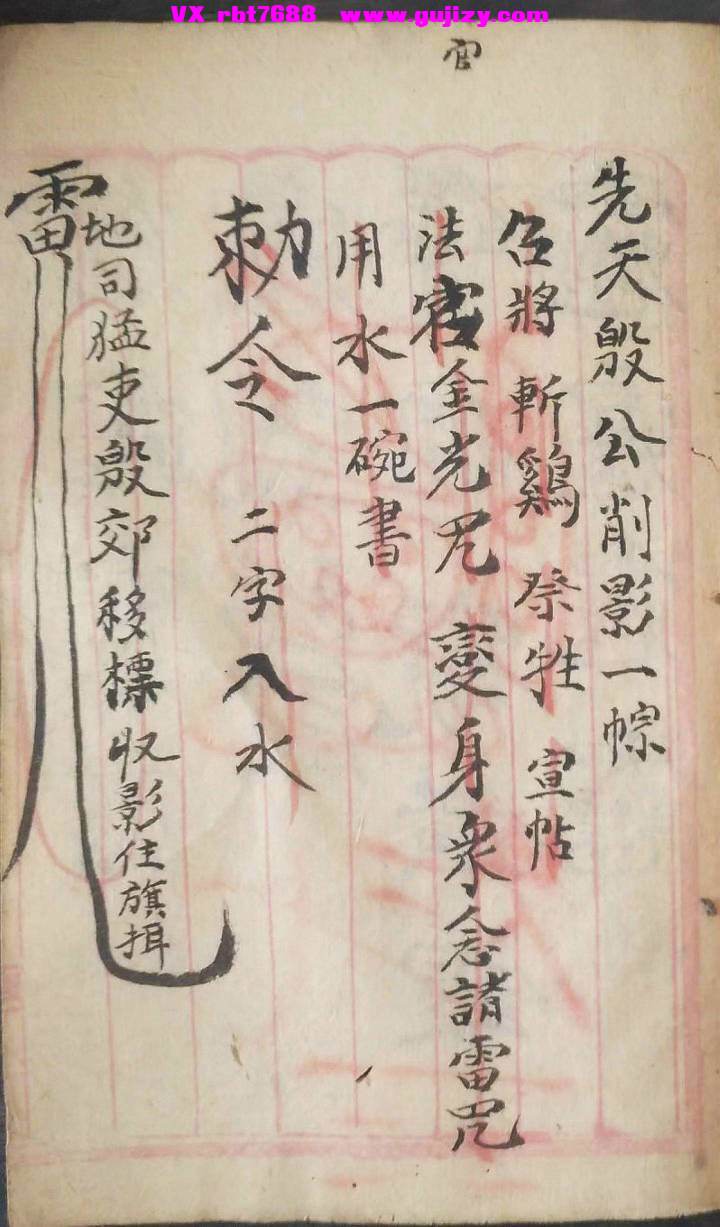 VX rbt7688 www.gujizy.com
官
先天殷公削影一幝
召將 斬鷄 祭牲 宣帖
法官金光咒 變身衆念諸雷咒
用水一碗書
勅令 二字入水
地司猛吏殷郊移標收影住旗揖
雷